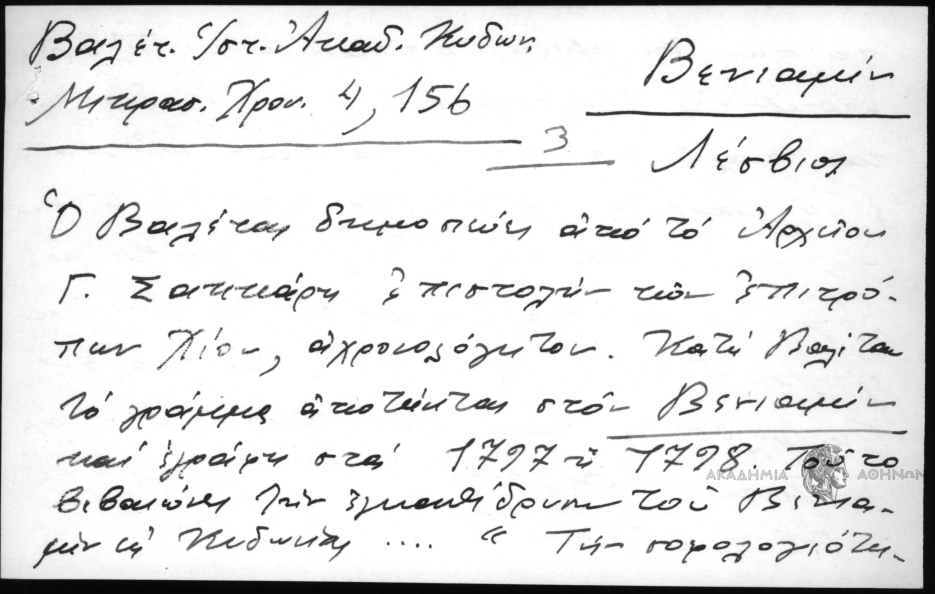 Βαλέτ. Ἱστ. Ἀκαδ. Κυδων.
Μικρασ. Χρον. 4, 156
Βενιαμὶν
3
Λέσβιος
Ὁ Βαλέτας δημοσιεύει ἀπὸ τὸ Ἀρχεῖον
Γ. Σακκάρη ἐπιστολὴν τῶν ἐπιτρό-
πων Χίου, ἀχρονολόγητον. Κατὰ Βαλέταν
τὸ γράμμα ἀποτείνεται στὸν Βενιαμὶν
καὶ ἐγράφη στὰ 1797 ἢ 1798. Τοῦτο
βεβαιώνει τὴν ἐγκαθίδρυση τοῦ Βενια-
μὶν εἰς Κυδωνίας .... " Τὴν σοφολογιότη-
ΑΚΑΔΗΜΙΑ ΑΘΗΝΩΝ